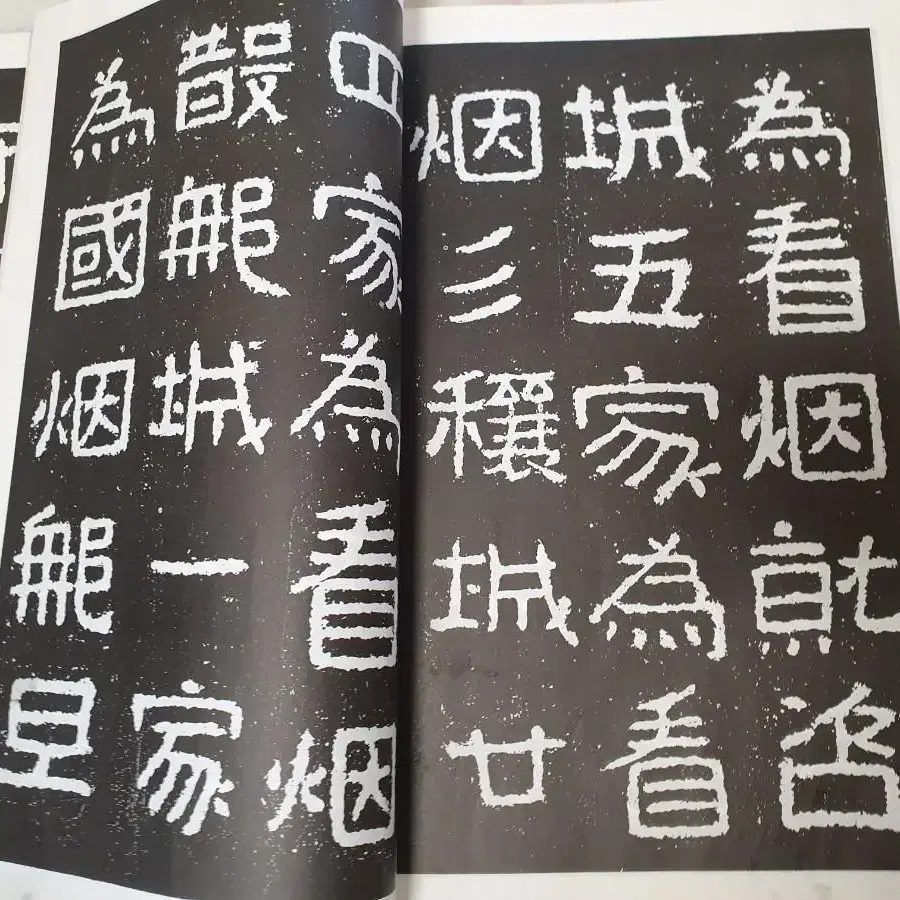 為看烟就咨
城五家為看
烟彡穰城廿
四家為看烟
散那城一家
為國烟那旦